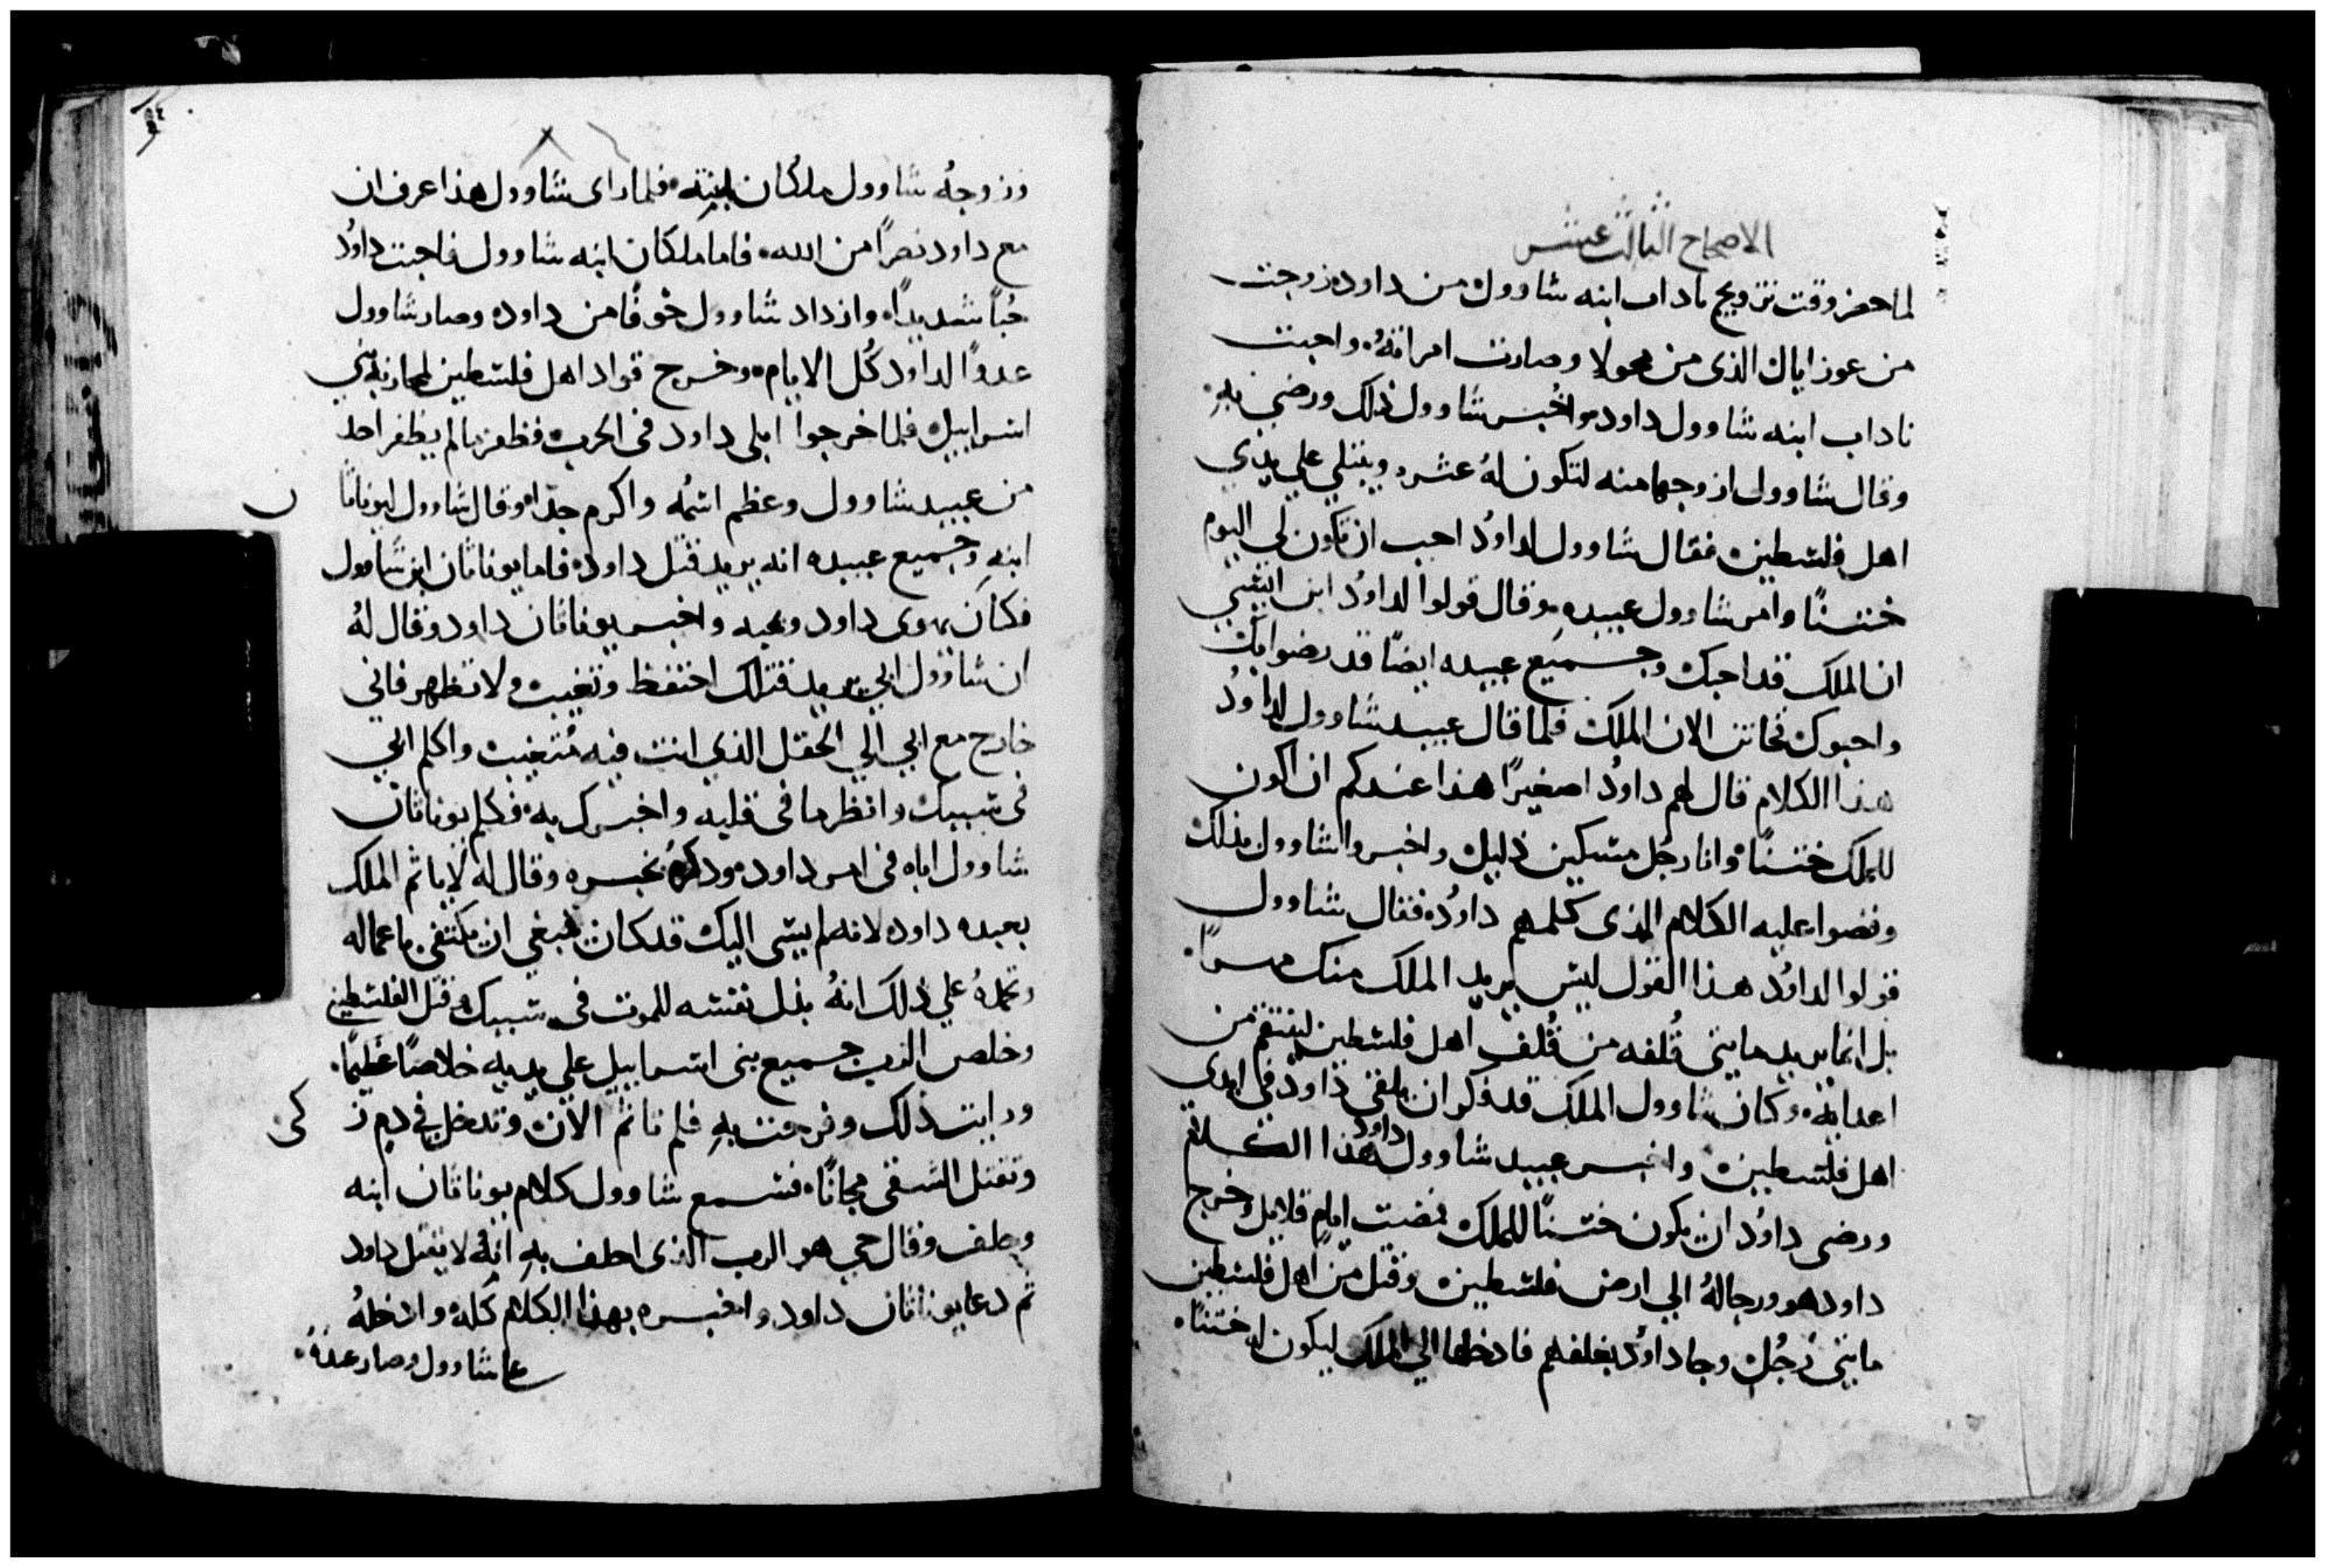 الاصحاح الثالث عشر
لما حضر وقت تزويج ناداب ابنه شاوول من داود زوجت
من عوزايال الذى من محولا وصارت امراته واحبت
ناداب ابنه شاوول داود واخبر شاوول ذلك ورضي به
وقال شاوول ازوجها منه لتكون له عثره ويبتلي علي يدي
اهل فلسطين فقال شاوول لداود احب ان تكون لي اليوم
ختنًا وامر شاوول عبيده وقال قولوا لداود ابن ايشي
ان الملك قد احبك وجميع عبيده ايضًا قد رضوا بك
واحبوك فخاتن الان الملك فلما قال عبيد شاوول لداود
هذا الكلام قال لهم داود اصغيرًا هذا عندكم ان اكون
للملك ختنًا وانا رجل مسكين ذليل واخبروا شاوول بذلك
وقصوا عليه الكلام الذى كلمهم داود فقال شاوول
قولوا لداود هذا القول ليس يريد الملك منك مهرًا
بل انما يريد مايتي قُلفه من قُلف اهل فلسطين لينتقم من
اعدايه وكان شاوول الملك قد فكر ان يلقى داود في ايدي
اهل فلسطين واخبر عبيد شاوول داود هذا الكلام
ورضى داود ان يكون ختنًا للملك فمضت ايام قلايل وخرج
داود هو ورجاله الي ارض فلسطين وقتل من اهل فلسطين
مايتى رجُل وجا داود بغلفهم فادخلها الي الملك ليكون له ختنًا
وزوجهُ شاوول ملكان ابنته فلما راى شاوول هذا عرف ان
مع داود نصرًا من الله فاما ملكان ابنه شاوول فاحبت داود
حُبًا شديدًا وازداد شاوول خوفًا من داود وصار شاوول
عدوًا لداود كُل الايام وخرج قواد اهل فلسطين لمحاربة بني
اسراييل فلما خرجوا ابلى داود في الحرب فظفر بما لم يظفر احد
من عبيد شاوول وعظم اسمُه واكرم جدًا وقال شاوول ليوناثا
ابنه وجميع عبيده انه يريد قتل داود فاما يوناثان ابن شاوول
فكان يهوى داود ويحبه واخبر يوناثان داود وقال لهُ
ان شاوول ابي يريد قتلك احتفظ وتغيب ولا تظهر فاني
خارج مع ابي الي الحقل الذي انت فيه مُتغيب واكلم ابي
فى سببك وانظر ما فى قلبه واخبرك به فكلم يوناثان
شاوول اباه فى امر داود وذكره بخير وقال له لا ياثم الملك
بعبده داود لانه لم يسى اليك قد كان ينبغي ان يكتفى باعماله
وتحمده علي ذلك انهُ بذل نفسه للموت فى سببك وقتل الفلسطيني
وخلص الرب جميع بنى اسراييل علي يديه خلاصًا عظيمًا
ورايت ذلك وفرحت به فلم تاثم الان وتدخل في دم ز
كى
وتقتل الشقى مجانًا فسمع شاوول كلام يوناثان ابنه
وحلف وقال حي هو الرب الذى احلف به انهُ لا يقتل داود
ثم دعا يوناثان داود واخبره بهذا الكلام كله وادخلهُ
علي شاوول وصار عنده